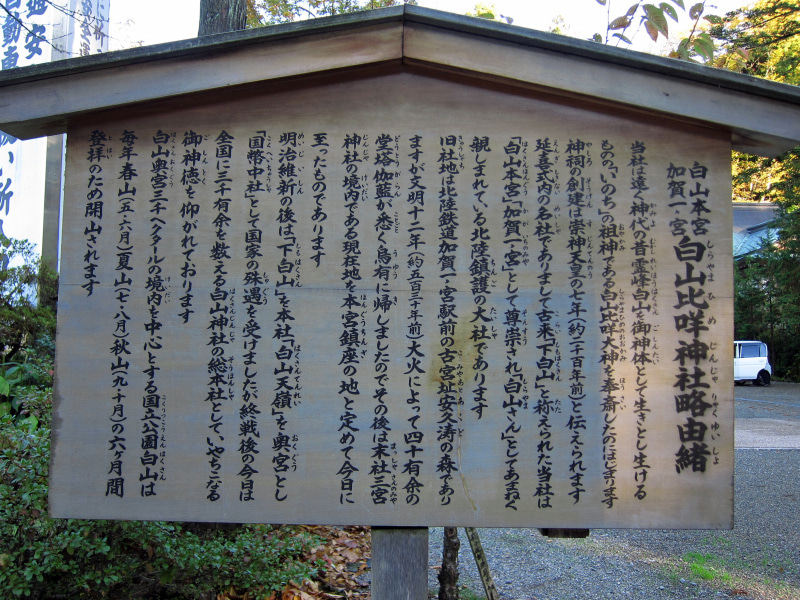 白山本宮
加賀一ノ宮
白山比咩神社略由緒
当社は遠く神代の昔霊峰白山を御神体として生きとし生ける
ものの「いのち」の祖神である白山比咩大神を奉斎したのにはじまります
神祠の創建は崇神天皇の七年(約二千百年前)と伝えられます
延喜式内の名社でありまして古来「下白山」と称えられた当社は
「白山本宮」「加賀一ノ宮」として尊崇され「白山さん」としてあまねく
親しまれている北陸鎮護の大社であります
旧社地は北陸鉄道加賀一ノ宮駅前の古宮址安久濤の森であり
ますが文明十二年(約五百三十年前)大火によって四十有余の
堂塔伽藍が悉く烏有に帰しましたのでその後は末社三宮
神社の境内である現在地を本宮鎮座の地と定めて今日に
至ったものであります
明治維新の後は「下白山」を本社「白山天嶺」を奥宮とし
「国幣中社」として国家の殊遇を受けましたが終戦後の今日は
全国に三千有余を数える白山神社の総本社として、いやちこなる
御神徳を仰がれております
白山奥宮三千ヘクタールの境内を中心とする国立公園白山は
毎年春山(五・六月)夏山(七・八月)秋山(九・十月)の六ヶ月間
登拝のため開山されます
自動車